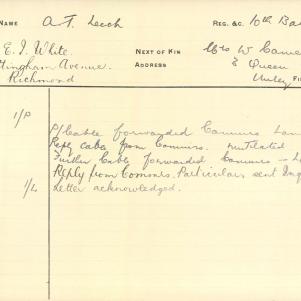 NAME A.T. Leech REG. &C. 10th Ba
E. J. White. NEXT OF KIN Mrs W Came
tingham Avenue. ADDRESS 2 Queen
Richmond Unley Fi
1/P
P/Cable forwarded Commrs Lon
Reply cable from Commrs. mutilated
Further Cable forwarded Commrs - L
Reply from Commrs. Particulars sent Inq
1/L Letter acknowledged.